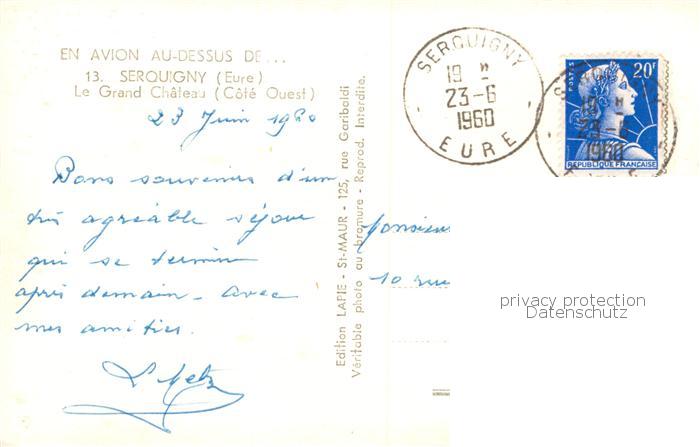 EN AVION AU-DESSUS DE...
13. SERQUIGNY (Eure)
Le Grand Château (Côté Ouest)
23 Juin 1960
Bons souvenirs d'un
très agréable séjour
qui se termine
après demain. Avec
mes amitiés.
L Metz
Edition LAPIE - St-MAUR - 125, rue Garibaldi
Véritable photo au bromure - Reprod. Interdite.
SERQUIGNY
19 H
23-6
1960
EURE
POSTES
20F
REPUBLIQUE FRANÇAISE
19 H
23-6
1960
Monsieur
10 rue
privacy protection
Datenschutz